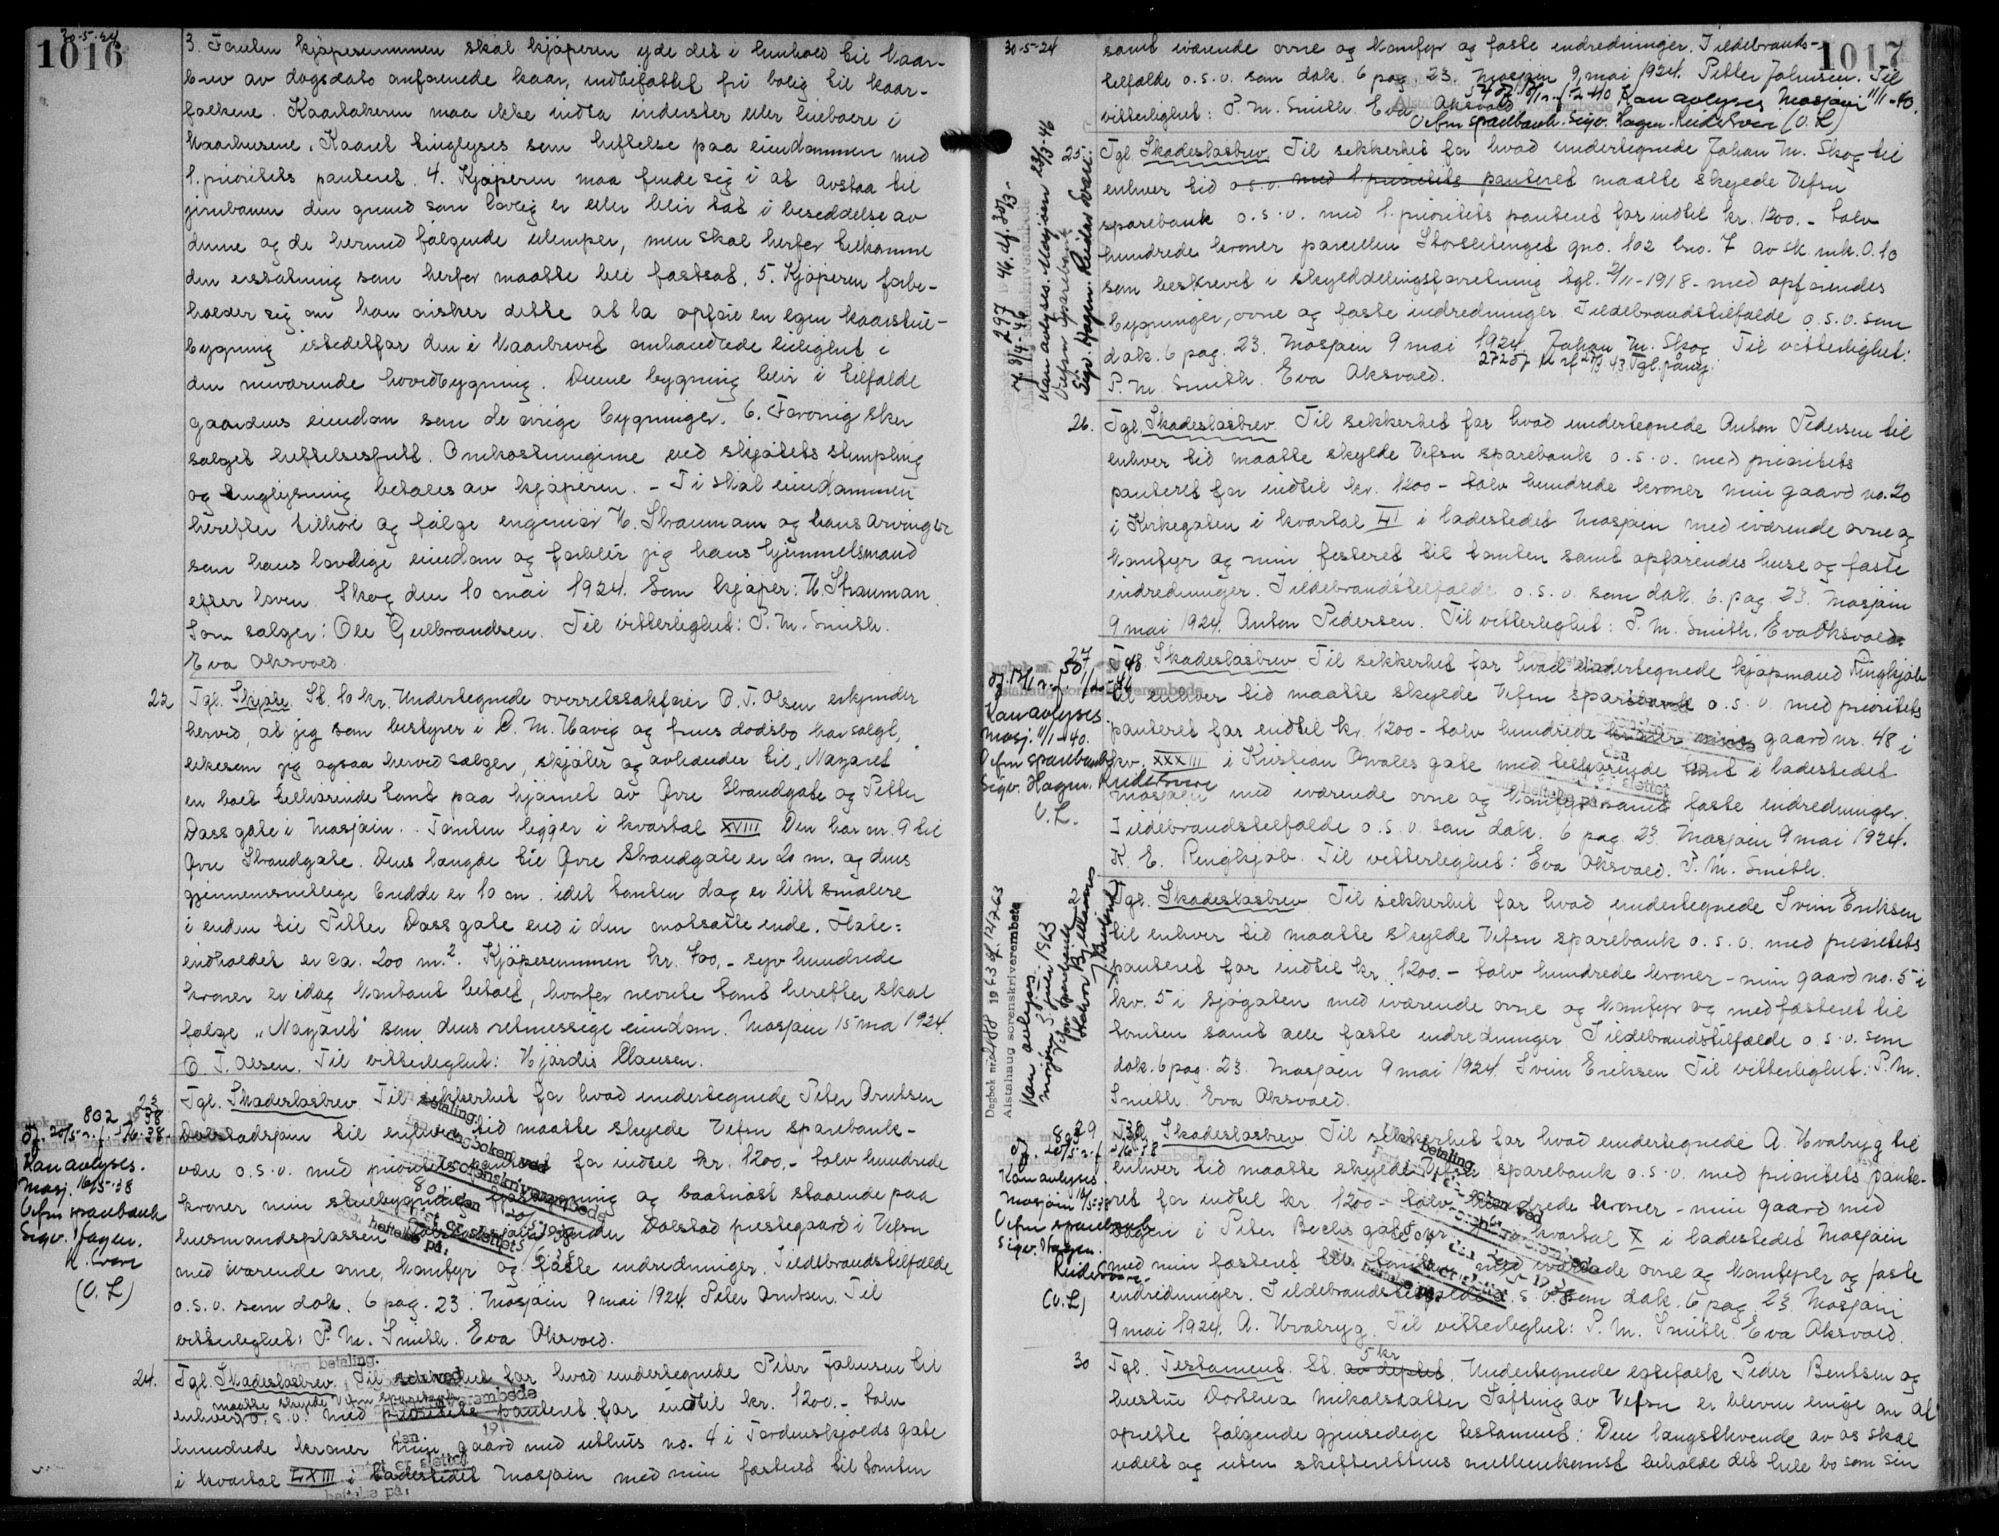 30-5-24
1016
3. Foruten kjøpesummen skal kjøperen yde det i henhold til kaar-
brev av dagsdato anførende kaar, indbefattet fri bolig til kaar-
folkene. Kaartakeren maa ikke indta inderster eller leieboere i
kaarhusene. Kaaret tinglyses som heftelse paa eiendommen med
1. prioritets panteret. 4. Kjøperen maa finde sig i at avstaa til
jernbanen den grund som lovlig er eller blir tat i besiddelse av
denne og de hermed følgende ulemper, men skal herfor tilkomme
den erstatning som herfor maatte bli fastsat. 5. Kjøperen forbe-
holder sig om han ønsker dette at la opføre en egen kaarstue-
bygning istedetfor den i kaarbrevet omhandlede leilighet i
den nuværende hovedbygning. Denne bygning blir i tilfælde
gaardens eiendom som de øvrige bygninger. 6. Forøvrig sker
salget heftelsesfritt. Omkostningerne ved skjøtets stempling
og tinglysning betales av kjøperen. - Ti skal eiendommen
herefter tilhøre og følge ingeniør H. Strauman og hans arvinger
som hans lovlige eiendom og forblir jeg hans hjemmelsmand
efter loven. Skog den 10 mai 1924. Som kjøper: H. Strauman.
Som sælger: Ole Gulbrandsen. Til vitterlighet: P. M. Smith.
Eva Aksvold.
22 Tgl. Skjøte. St. 10 kr. Undertegnede overretssakfører O. T. Olsen erkjender
herved, at jeg som bestyrer i O. M. Havig og frues dødsbo har solgt,
likesom jeg ogsaa herved sælger, skjøter og avhænder til "Nazaret"
en boet tilhørende tomt paa hjørnet av Øvre Strandgate og Petter
Dass gate i Mosjøen. Tomten ligger i kvartal XVIII Den har nr. 9 til
Øvre Strandgate. Dens længde til Øvre Strandgate er 20 m. og dens
gjennemsnitlige bredde er 10 m. idet tomten dog er litt smalere
i enden til Petter Dass gate end i den motsatte ende. Flate=
indholdet er ca. 200 m.². Kjøpesummen kr. 700,- syv hundrede
kroner er idag kontant betalt, hvorfor nevnte tomt herefter skal
følge "Nazaret" som dens retmessige eiendom. Mosjøen 15 mai 1924.
O. T. Olsen. Til vitterlighet: Hjørdis Clausen.
23 Tgl. Skadesløsbrev Til sikkerhet for hvad undertegnede Peter Arntsen
Dolstadsjøen til enhver tid maatte skylde Vefsn sparebank-
være o.s.v. med prioritets panteret for indtil kr. 1200,- tolv hundrede
kroner min stuebygning og baatnøst staaende paa
husmandsplassen under Dolstad prestegaard i Vefsn
med iværende ovne, komfyr og faste indredninger. Ildebrandstilfælde
o.s.v. som dok. 6 pag. 23. Mosjøen 9 mai 1924. Peter Arntsen. Til
vitterlighet: P. M. Smith. Eva Aksvold.
802 1938
Kan avlyses.
Mosj. 16/5-38
Vefsn sparebank
Sigv. Hagen.
(O. L)
24. Tgl. Skadesløsbrev. Til sikkerhet for hvad undertegnede Peter Johnsen til
maatte skylde Vefsn sparebank
enhver o.s.v. med prioritets panteret for indtil kr. 1200,- tolv
hundrede kroner min gaard med uthus no. 4 i Tordenskjolds gate
i kvartal LXIII i ladestedet Mosjøen med min festeret til tomten
1017
30-5-24
samt iværende ovne og komfyr og faste indredninger. Ildebrands-
tilfælde o.s.v. som dok. 6 pag. 23. Mosjøen 9, mai 1924. Petter Johnsen. Til
vitterlighet: P. M. Smith. Eva Aksvold.
Kan avlyses Mosjøen 11/1-40.
Vefsn sparebank. Sigv. Hagen. Reidar Svare (O. L)
25. Tgl Skadesløsbrev. Til sikkerhet for hvad undertegnede Johan M. Skog til
enhver tid o.s.v. med 1. prioritets panteret maatte skylde Vefsn
sparebank o.s.v. med 1. prioritets panteret for indtil kr. 1200.- tolv
hundrede kroner parcellen Storslettenget gno. 102 bno. 7 av sk. mk. 0.10
som beskrevet i skylddelingsforretning tgl. 2/11-1918 - med opførendes
bygninger, ovne og faste indredninger. Ildebrandstilfælde o.s.v. som
dok. 6 pag. 23. Mosjøen 9 mai 1924. Johan M. Skog Til vitterlighet:
P. M. Smith. Eva Aksvold.
297
Kan avlyses. Mosjøen 23/3-46
Vefsn sparebank
Sigv. Hagen. Reidar Svare.
26. Tgl. Skadesløsbrev Til sikkerhet for hvad undertegnede Anton Pedersen til
enhver tid maatte skylde Vefsn sparebank o.s.v. med prioritets
panteret for indtil kr. 1200 - tolv hundrede kroner min gaard no. 20
i Kirkegaten i kvartal LI i ladestedet Mosjøen med iværende ovne og
komfyr og min festeret til tomten samt opførendes huse og faste
indredninger. Ildebrandstilfælde o.s.v. som dok. 6. pag. 23. Mosjøen
9 mai 1924. Anton Pedersen. Til vitterlighet: P. M. Smith. Eva Aksvold.
27 Tgl. Skadesløsbrev Til sikkerhet for hvad undertegnede kjøpmand Ringkjøb
til enhver tid maatte skylde Vefsn sparebank o.s.v. med prioritets
panteret for indtil kr. 1200 - tolv hundrede kroner min gaard nr. 48 i
kv. XXXIII i Kristian Qvales gate med tilhørende tomt i ladestedet
Mosjøen med iværende ovne og komfyr samt faste indredninger.
Ildebrandstilfælde o.s.v. som dok. 6 pag. 23. Mosjøen 9 mai 1924.
K. E. Ringkjøb. Til vitterlighet: Eva Aksvold. P. M. Smith.
Kan avlyses
Mosj. 11/1-40.
Vefsn sparebank
Sigv. Hagen. Reidar Svare
O. L.
Tgl. Skadesløsbrev. Til sikkerhet for hvad undertegnede Svein Eriksen
til enhver tid maatte skylde Vefsn sparebank o.s.v. med prioritets
panteret for indtil kr. 1200.- tolv hundrede kroner - min gaard no. 5 i
kv. 5 i Sjøgaten med iværende ovne og komfyr og med festeret til
tomten samt alle faste indredninger Ildebrandstilfælde o.s.v. som
dok. 6 pag. 23. Mosjøen 9 mai 1924. Svein Eriksen Til vitterlighet: P. M.
Smith. Eva Aksvold.
Alstahaug sorenskriverembete
Kan avlyses
Mosjøen 5 juni 1963
29 Tgl. Skadesløsbrev Til sikkerhet for hvad undertegnede A. Hvalryg til
enhver tid maatte skylde Vefsn sparebank o.s.v. med prioritets pante-
ret for indtil kr. 1200 - tolv hundrede kroner - min gaard med
i Peter Bechs gate kvartal X i ladestedet Mosjøen
med min festeret til tomten med iværende ovne og komfyrer og faste
indredninger. Ildebrandstilfælde o.s.v. som dok. 6 pag. 23 Mosjøen
9 mai 1924. A. Hvalryg. Til vitterlighet: P. M. Smith. Eva Aksvold.
Kan avlyses
Mosjøen 16/5-38
Vefsn sparebank
Sigv. Hagen.
(O. L)
30 Tgl. Testament. St. 5 kr. Undertegnede egtefolk Peder Bentsen og
hustru Dorthea Nikolsdatter Søfting av Vefsn er blevne enige om at
oprette følgende gjensidige testament: Den længstlevende av os skal
udelt og uten skifterettens mellemkomst beholde det hele bo som sin